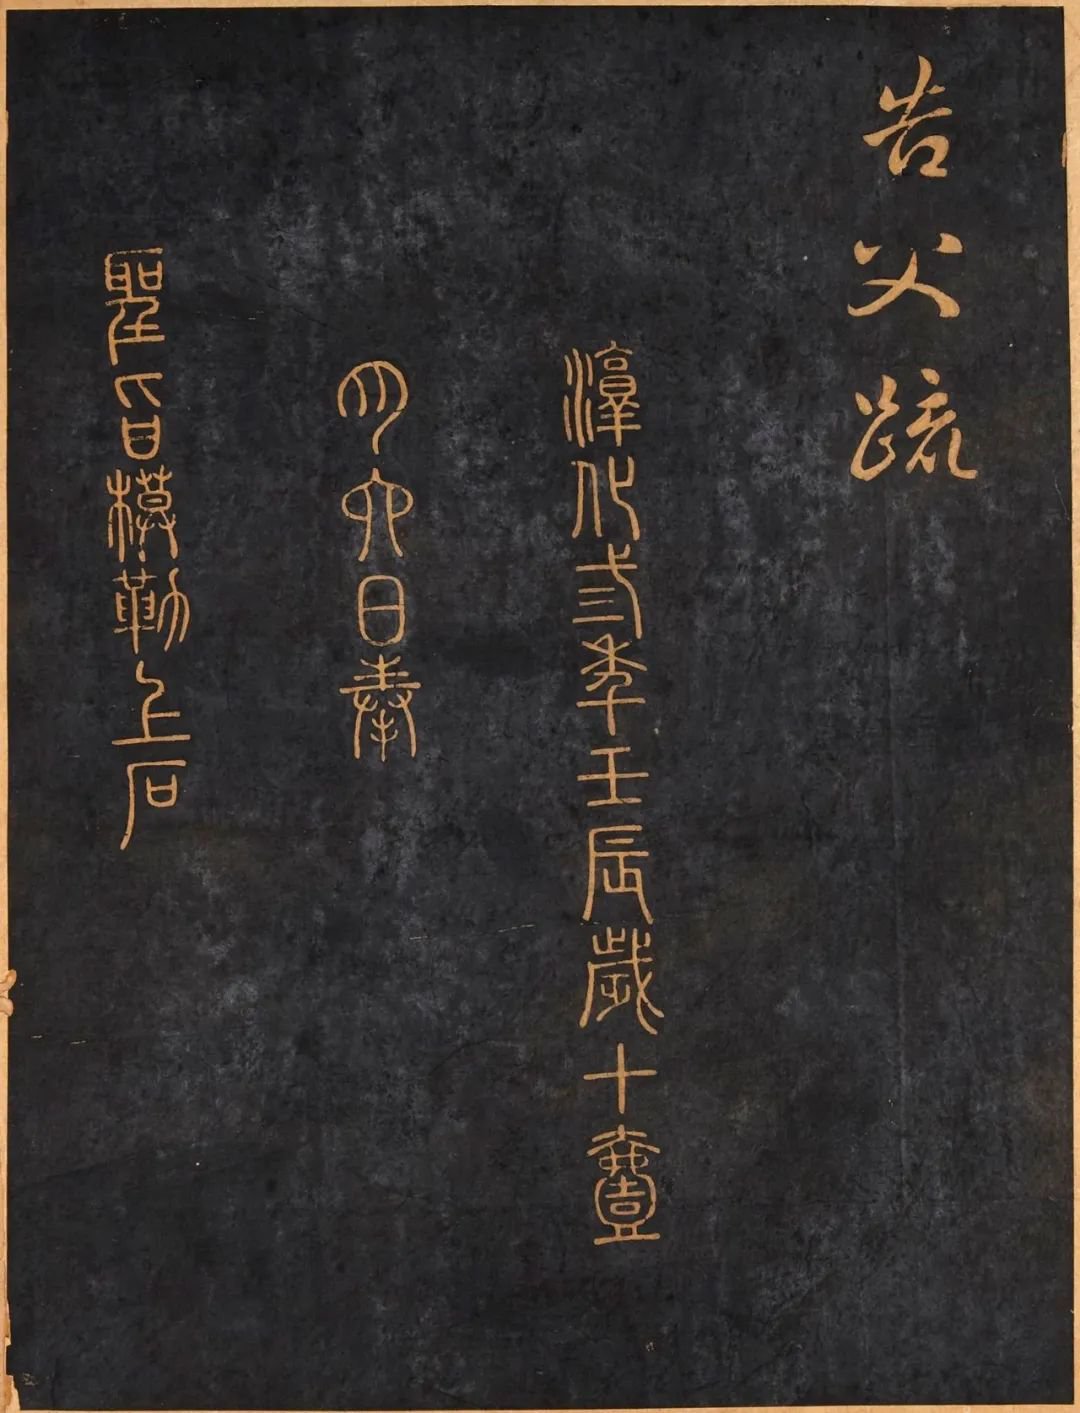 告父疏
淳化弎年壬辰歲十壹
月六日奉
聖旨模勒上石